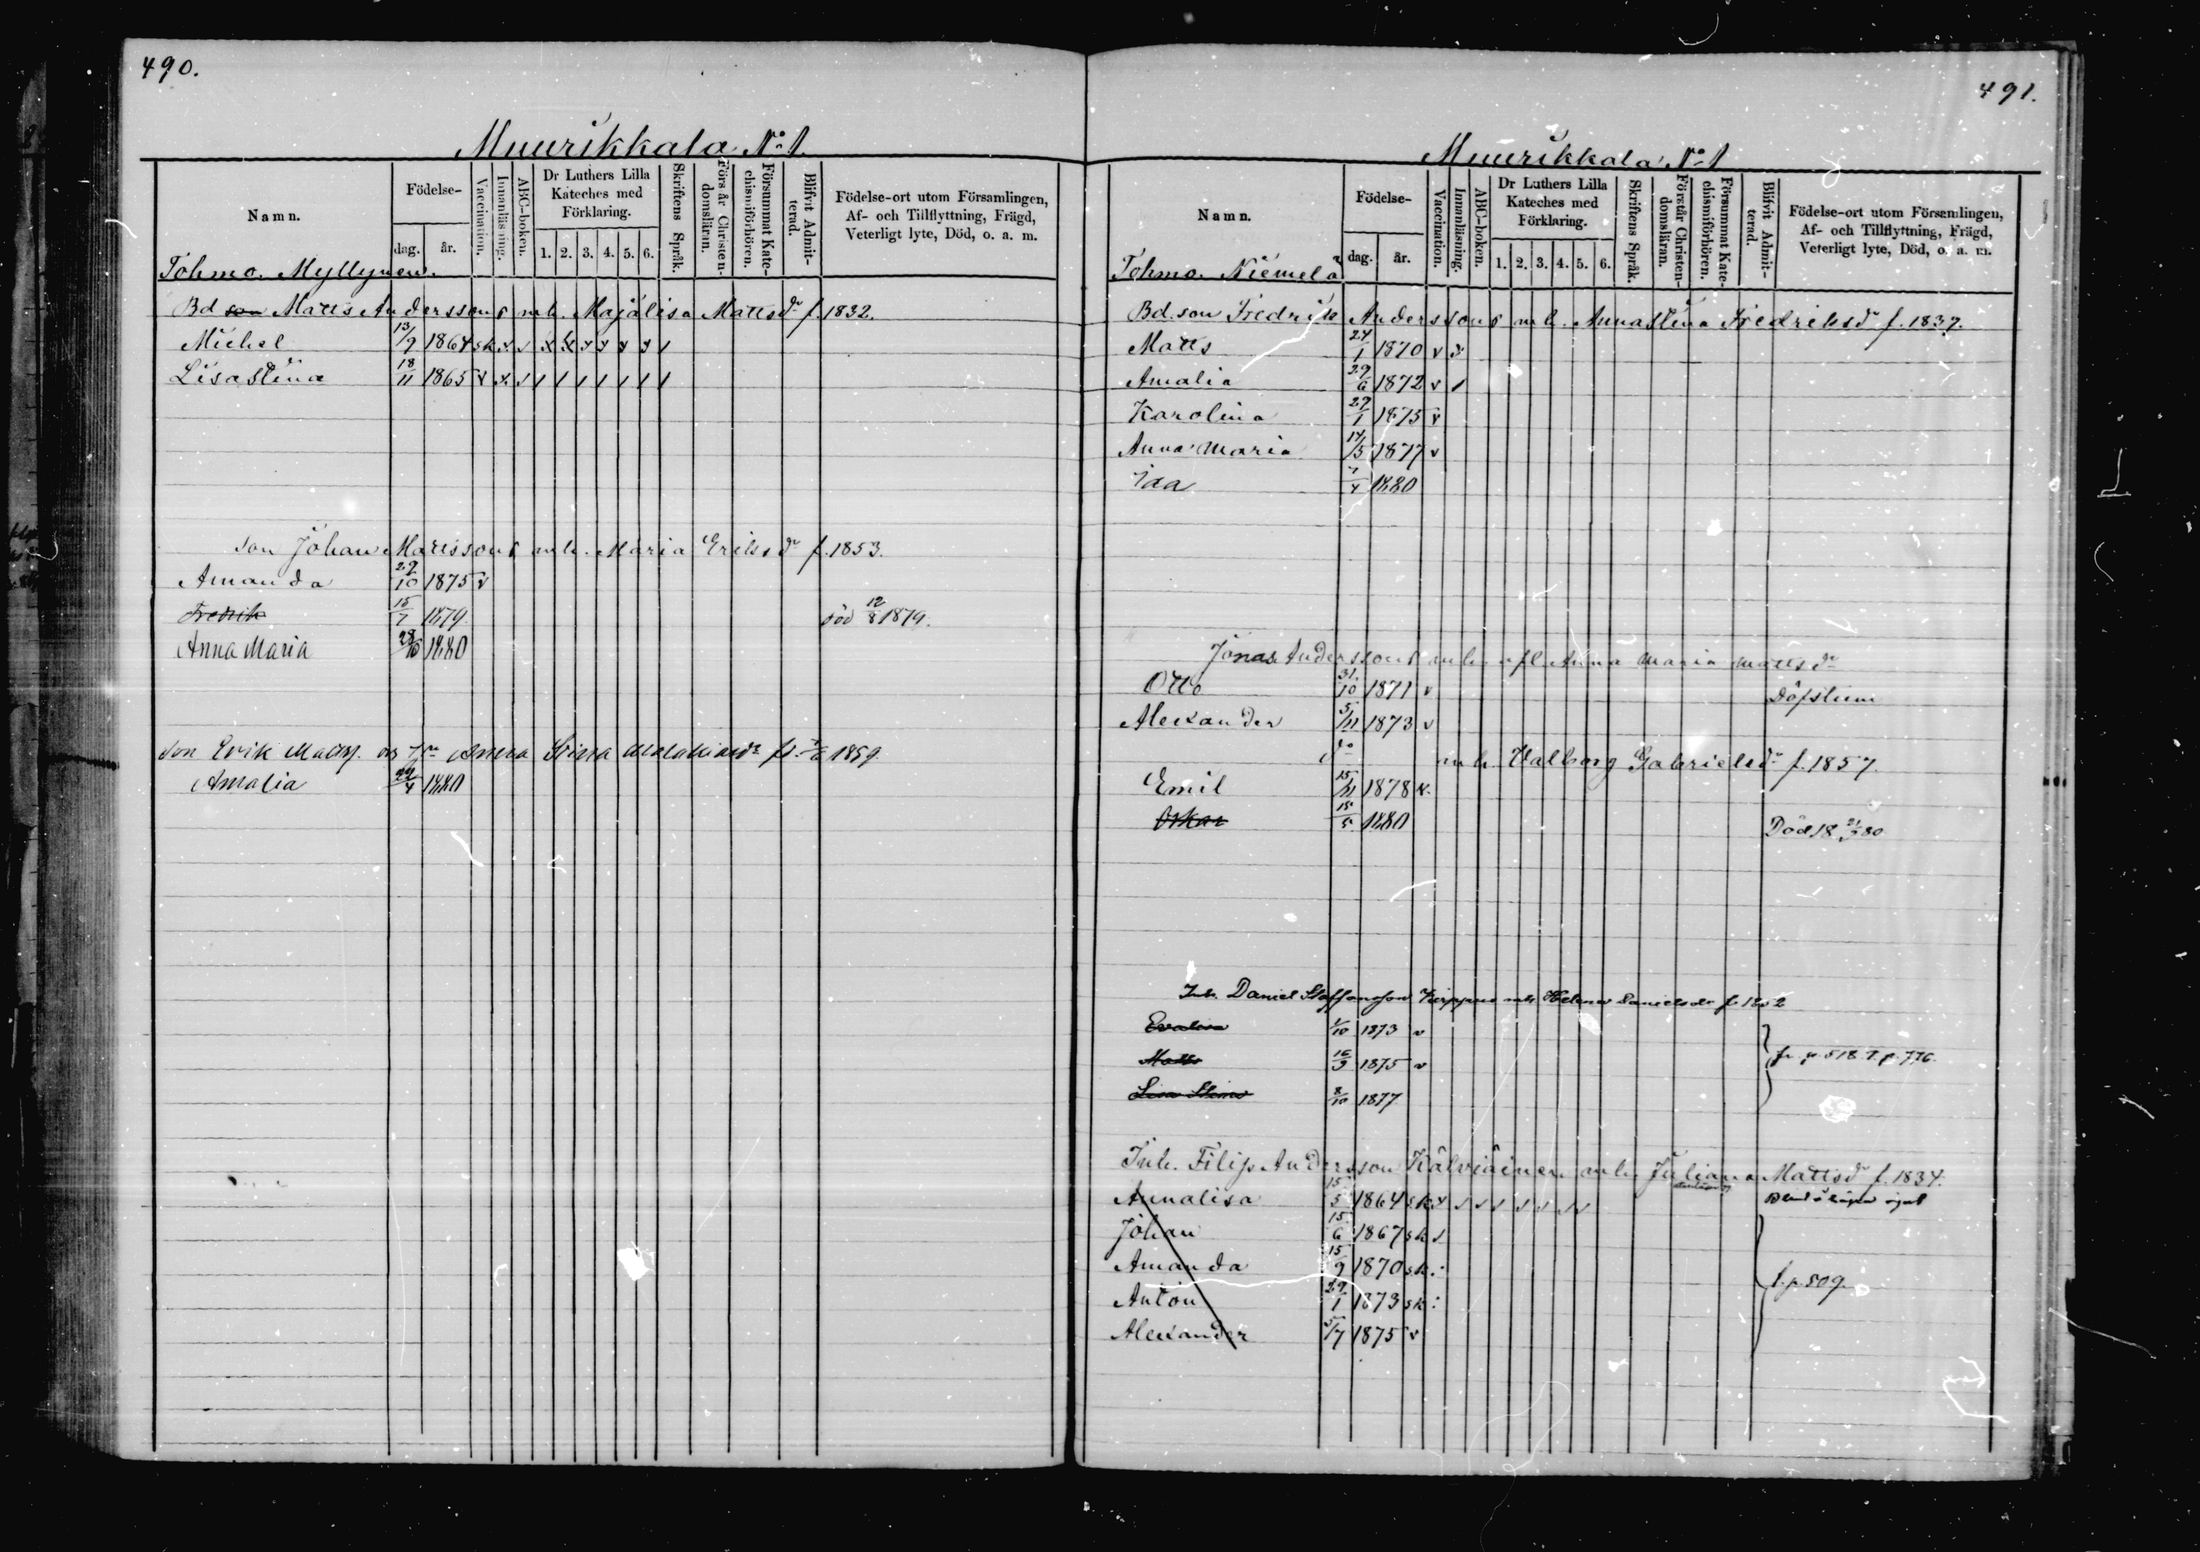 490.
Muurikkala No 1.
Namn.
Födelse-
dag.
år.
Vaccination.
Innanläsning.
ABC-boken.
Dr Luthers Lilla
Kateches med
Förklaring.
1. 2. 3. 4. 5. 6.
Skriftens Språk.
Förs år Christen-
domsläran.
Försummat Kate-
chismiförhören.
Blifvit Admit-
terad.
Födelse-ort utom Församlingen,
Af- och Tillflyttning, Frägd,
Veterligt lyte, Död, o. a. m.
Tohmo. Myllynen.
Bd son Matts Anderssons m h. Majalisa Mattsdr f. 1832.
Michel 13/9 1864 sk x v x x x x x x /
Lisastina 18/11 1865 v x v / / / / / / /
son Johan Mattssons m h. Maria Eriksdr f. 1853.
Amanda 29/10 1875 v
Fredrik 15/7 1879. död 12/8 1879.
Anna Maria 28/10 1880
son Erik Anna Stina 1859.
Amalia 1880
491.
Muurikkala No 1
Namn.
Födelse-
dag.
år.
Vaccination.
Innanläsning.
ABC-boken.
Dr Luthers Lilla
Kateches med
Förklaring.
1. 2. 3. 4. 5. 6.
Skriftens Språk.
Förstår Christen-
domsläran.
Försummat Kate-
chismiförhören.
Blifvit Admit-
terad.
Födelse-ort utom Församlingen,
Af- och Tillflyttning, Frägd,
Veterligt lyte, Död, o. a. m.
Tohmo. Niemelä
Bd. son Fredrik Anderssons m h. Annastina Fredriksdr f. 1837.
Matts 24/1 1870 v
Amalia 29/6 1872 v /
Karolina 27/1 1875 v
Anna Maria 14/5 1877 v
Ida 1880
Jonas Anderssons m h. afl. Anna Maria Mattsdr
Otto 31/10 1871 v Döfstum
Alexander 5/11 1873 v
do m h. Valborg Gabrielsdr f. 1857.
Emil 15/11 1878 v.
Oskar 15/5 1880 Död 18 80
Inh. Daniel Staffansson m h Helena Danielsdr f. 1852
Evalisa 1/10 1873 v
Matts 16/9 1875 v fr. p. 518. T. p. 776.
Lisa Stina 8/10 1877
Inh. Filip Andersson Kälviäinen m h. Juliana Mattsdr f. 1834.
Annalisa 15/5 1864 sk x v v v v v v Blind å högra ögat
Johan 15/6 1867 sk v
Amanda 15/9 1870 sk :
Anton 29/1 1873 sk : t. p. 509.
Alexander 5/7 1875 v